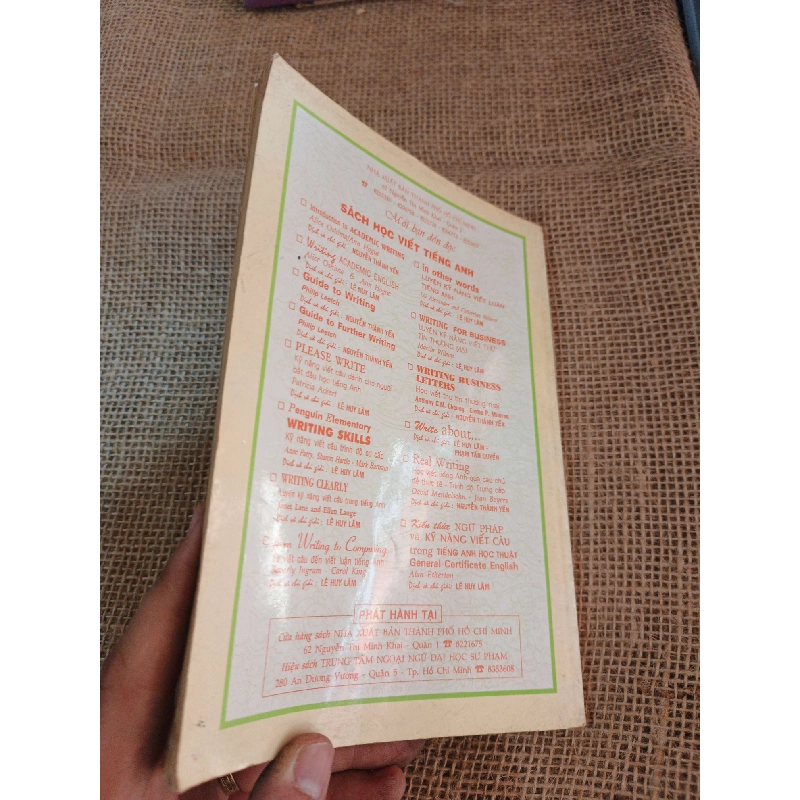 NHÀ XUẤT BẢN THÀNH PHỐ HỒ CHÍ MINH
62 Nguyễn Thị Minh Khai - Quận 1
Mời bạn đón đọc
SÁCH HỌC VIẾT TIẾNG ANH
Introduction to ACADEMIC WRITING
Alice Oshima/Ann Hogue
Dịch và chú giải: NGUYỄN THÀNH YẾN
Writing ACADEMIC ENGLISH
Alice Oshima & Ann Hogue
Dịch và chú giải: LÊ HUY LÂM
Guide to Writing
Philip Leetch
Dịch và chú giải: NGUYỄN THÀNH YẾN
Guide to Further Writing
Philip Leetch
Dịch và chú giải: NGUYỄN THÀNH YẾN
PLEASE WRITE
Kỹ năng viết câu dành cho người
bắt đầu học tiếng Anh
Patricia Ackert
Dịch và chú giải: LÊ HUY LÂM
Penguin Elementary
WRITING SKILLS
Kỹ năng viết câu trình độ sơ cấp
Anne Parry, Sharon Hartle - Mark Bartram
Dịch và chú giải: LÊ HUY LÂM
WRITING CLEARLY
Luyện kỹ năng viết câu trong tiếng Anh
Janet Lane and Ellen Lange
Dịch và chú giải: LÊ HUY LÂM
From Writing to Composing
Từ viết câu đến viết luận tiếng Anh
Beverly Ingram - Carol King
Dịch và chú giải: LÊ HUY LÂM
In other words
LUYỆN KỸ NĂNG VIẾT LUẬN
TIẾNG ANH
Dịch và chú giải: LÊ HUY LÂM
WRITING FOR BUSINESS
LUYỆN KỸ NĂNG VIẾT THƯ
TÍN THƯƠNG MẠI
Merlin Wilson
Dịch và chú giải: LÊ HUY LÂM
WRITING BUSINESS
LETTERS
Học viết thư tín thương mại
Dịch và chú giải: NGUYỄN THÀNH YẾN
Write about...
Dịch và chú giải: LÊ HUY LÂM -
PHẠM TẤN QUYỀN
Real Writing
Học viết tiếng Anh qua các chủ
đề thực tế - Trình độ Trung cấp
David Mendelsohn - Joan Beyers
Dịch và chú giải: NGUYỄN THÀNH YẾN
Kiến thức NGỮ PHÁP
và KỸ NĂNG VIẾT CÂU
trong TIẾNG ANH HỌC THUẬT
General Certificate English
Alan Etherton
Dịch và chú giải: LÊ HUY LÂM
PHÁT HÀNH TẠI
Cửa hàng sách NHÀ XUẤT BẢN THÀNH PHỐ HỒ CHÍ MINH
62 Nguyễn Thị Minh Khai - Quận 1 ☎ 8221675
Hiệu sách TRUNG TÂM NGOẠI NGỮ ĐẠI HỌC SƯ PHẠM
280 An Dương Vương - Quận 5 - Tp. Hồ Chí Minh ☎ 8352608